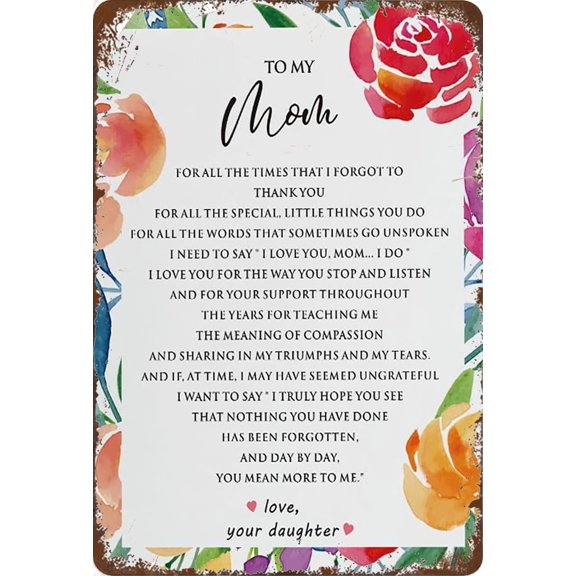 TO MY
Mom
FOR ALL THE TIMES THAT I FORGOT TO
THANK YOU
FOR ALL THE SPECIAL, LITTLE THINGS YOU DO
FOR ALL THE WORDS THAT SOMETIMES GO UNSPOKEN
I NEED TO SAY " I LOVE YOU, MOM... I DO "
I LOVE YOU FOR THE WAY YOU STOP AND LISTEN
AND FOR YOUR SUPPORT THROUGHOUT
THE YEARS FOR TEACHING ME
THE MEANING OF COMPASSION
AND SHARING IN MY TRIUMPHS AND MY TEARS.
AND IF, AT TIME, I MAY HAVE SEEMED UNGRATEFUL
I WANT TO SAY " I TRULY HOPE YOU SEE
THAT NOTHING YOU HAVE DONE
HAS BEEN FORGOTTEN,
AND DAY BY DAY,
YOU MEAN MORE TO ME."
love,
your daughter